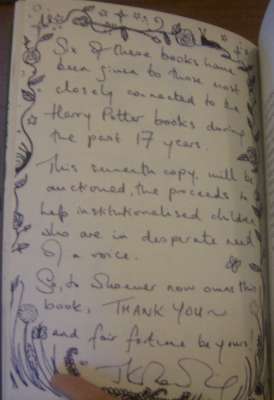 Six of these books have
been given to those most
closely connected to the
Harry Potter books during
the past 17 years.
This seventh copy will be
auctioned, the proceeds to
help institutionalised children
who are in desperate need
of a voice.
So, to whoever now owns this
book, THANK YOU ~
and fair fortune be yours!
JK Rowling